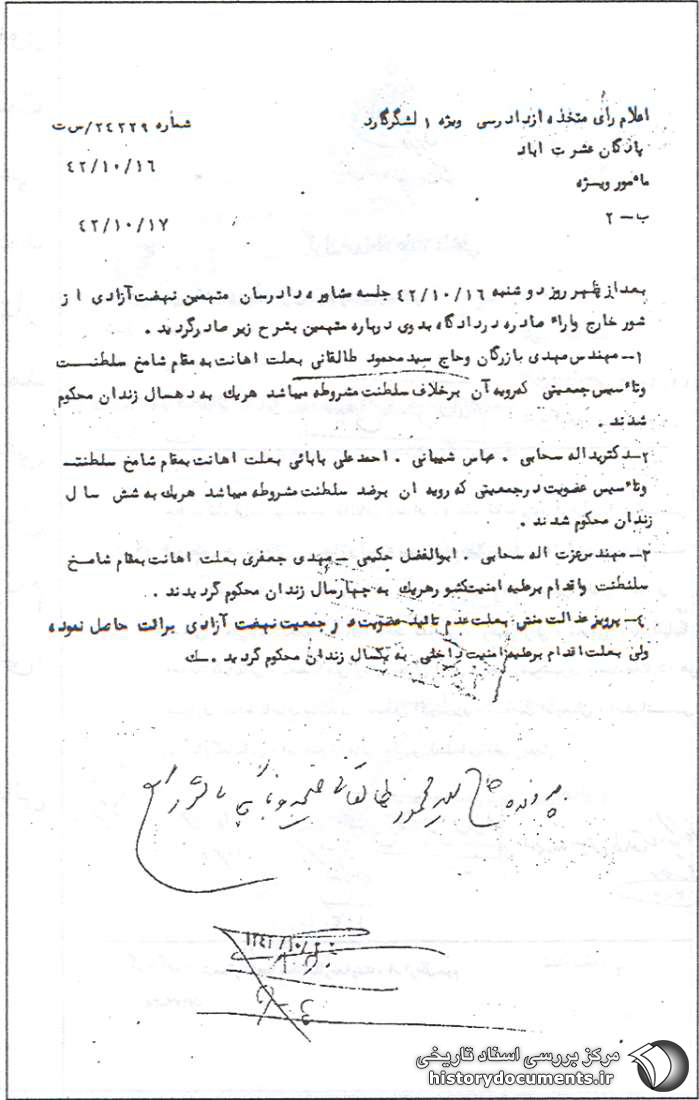 اعلام رأی متخذه ازدادرسی ویژه ۱ لشگرگارد
شماره ۲۴۲۲۹/س ت
پادگان عشرت اباد
۴۲/۱۰/۱۶
مأمور ویژه
ب — ۲
۴۲/۱۰/۱۷
بعد از ظهر روز دوشنبه ۴۲/۱۰/۱۶ جلسه مشاوره دادرسان متهمین نهضت آزادی از
شور خارج واراء صادره در دادگاه بدوی درباره متهمین بشرح زیر صادرگردید .
۱— مهندس مهدی بازرگان وحاج سید محمود طالقانی بعلت اهانت به مقام شامخ سلطنت
وتأسیس جمعیتی که رویه آن برخلاف سلطنت مشروطه میباشد هریک به دهسال زندان محکوم
شدند .
۲— دکتر یداله سحابی . عباس شیبانی . احمد علی بابائی بعلت اهانت بمقام شامخ سلطنت
وتأسیس عضویت درجمعیتی که رویه ان برضد سلطنت مشروطه میباشد هریک به شش سال
زندان محکوم شدند .
۳— مهندس عزت اله سحابی . ابوالفضل حکیمی — مهدی جعفری بعلت اهانت بمقام شامخ
سلطنت واقدام برعلیه امنیت کشور هریک به چهارسال زندان محکوم گردیدند .
۴— پرویز عدالت منش بعلت عدم تائید عضویت در جمعیت نهضت آزادی برائت حاصل نموده
ولی بعلت اقدام برعلیه امنیت داخلی به یکسال زندان محکوم گردید . سک
پرونده حاج سید محمود طالقانی ضمیمه و بایگانی شود
۱۳۴۲/۱۰/۲۰
مرکز بررسی اسناد تاریخی
historydocuments.ir